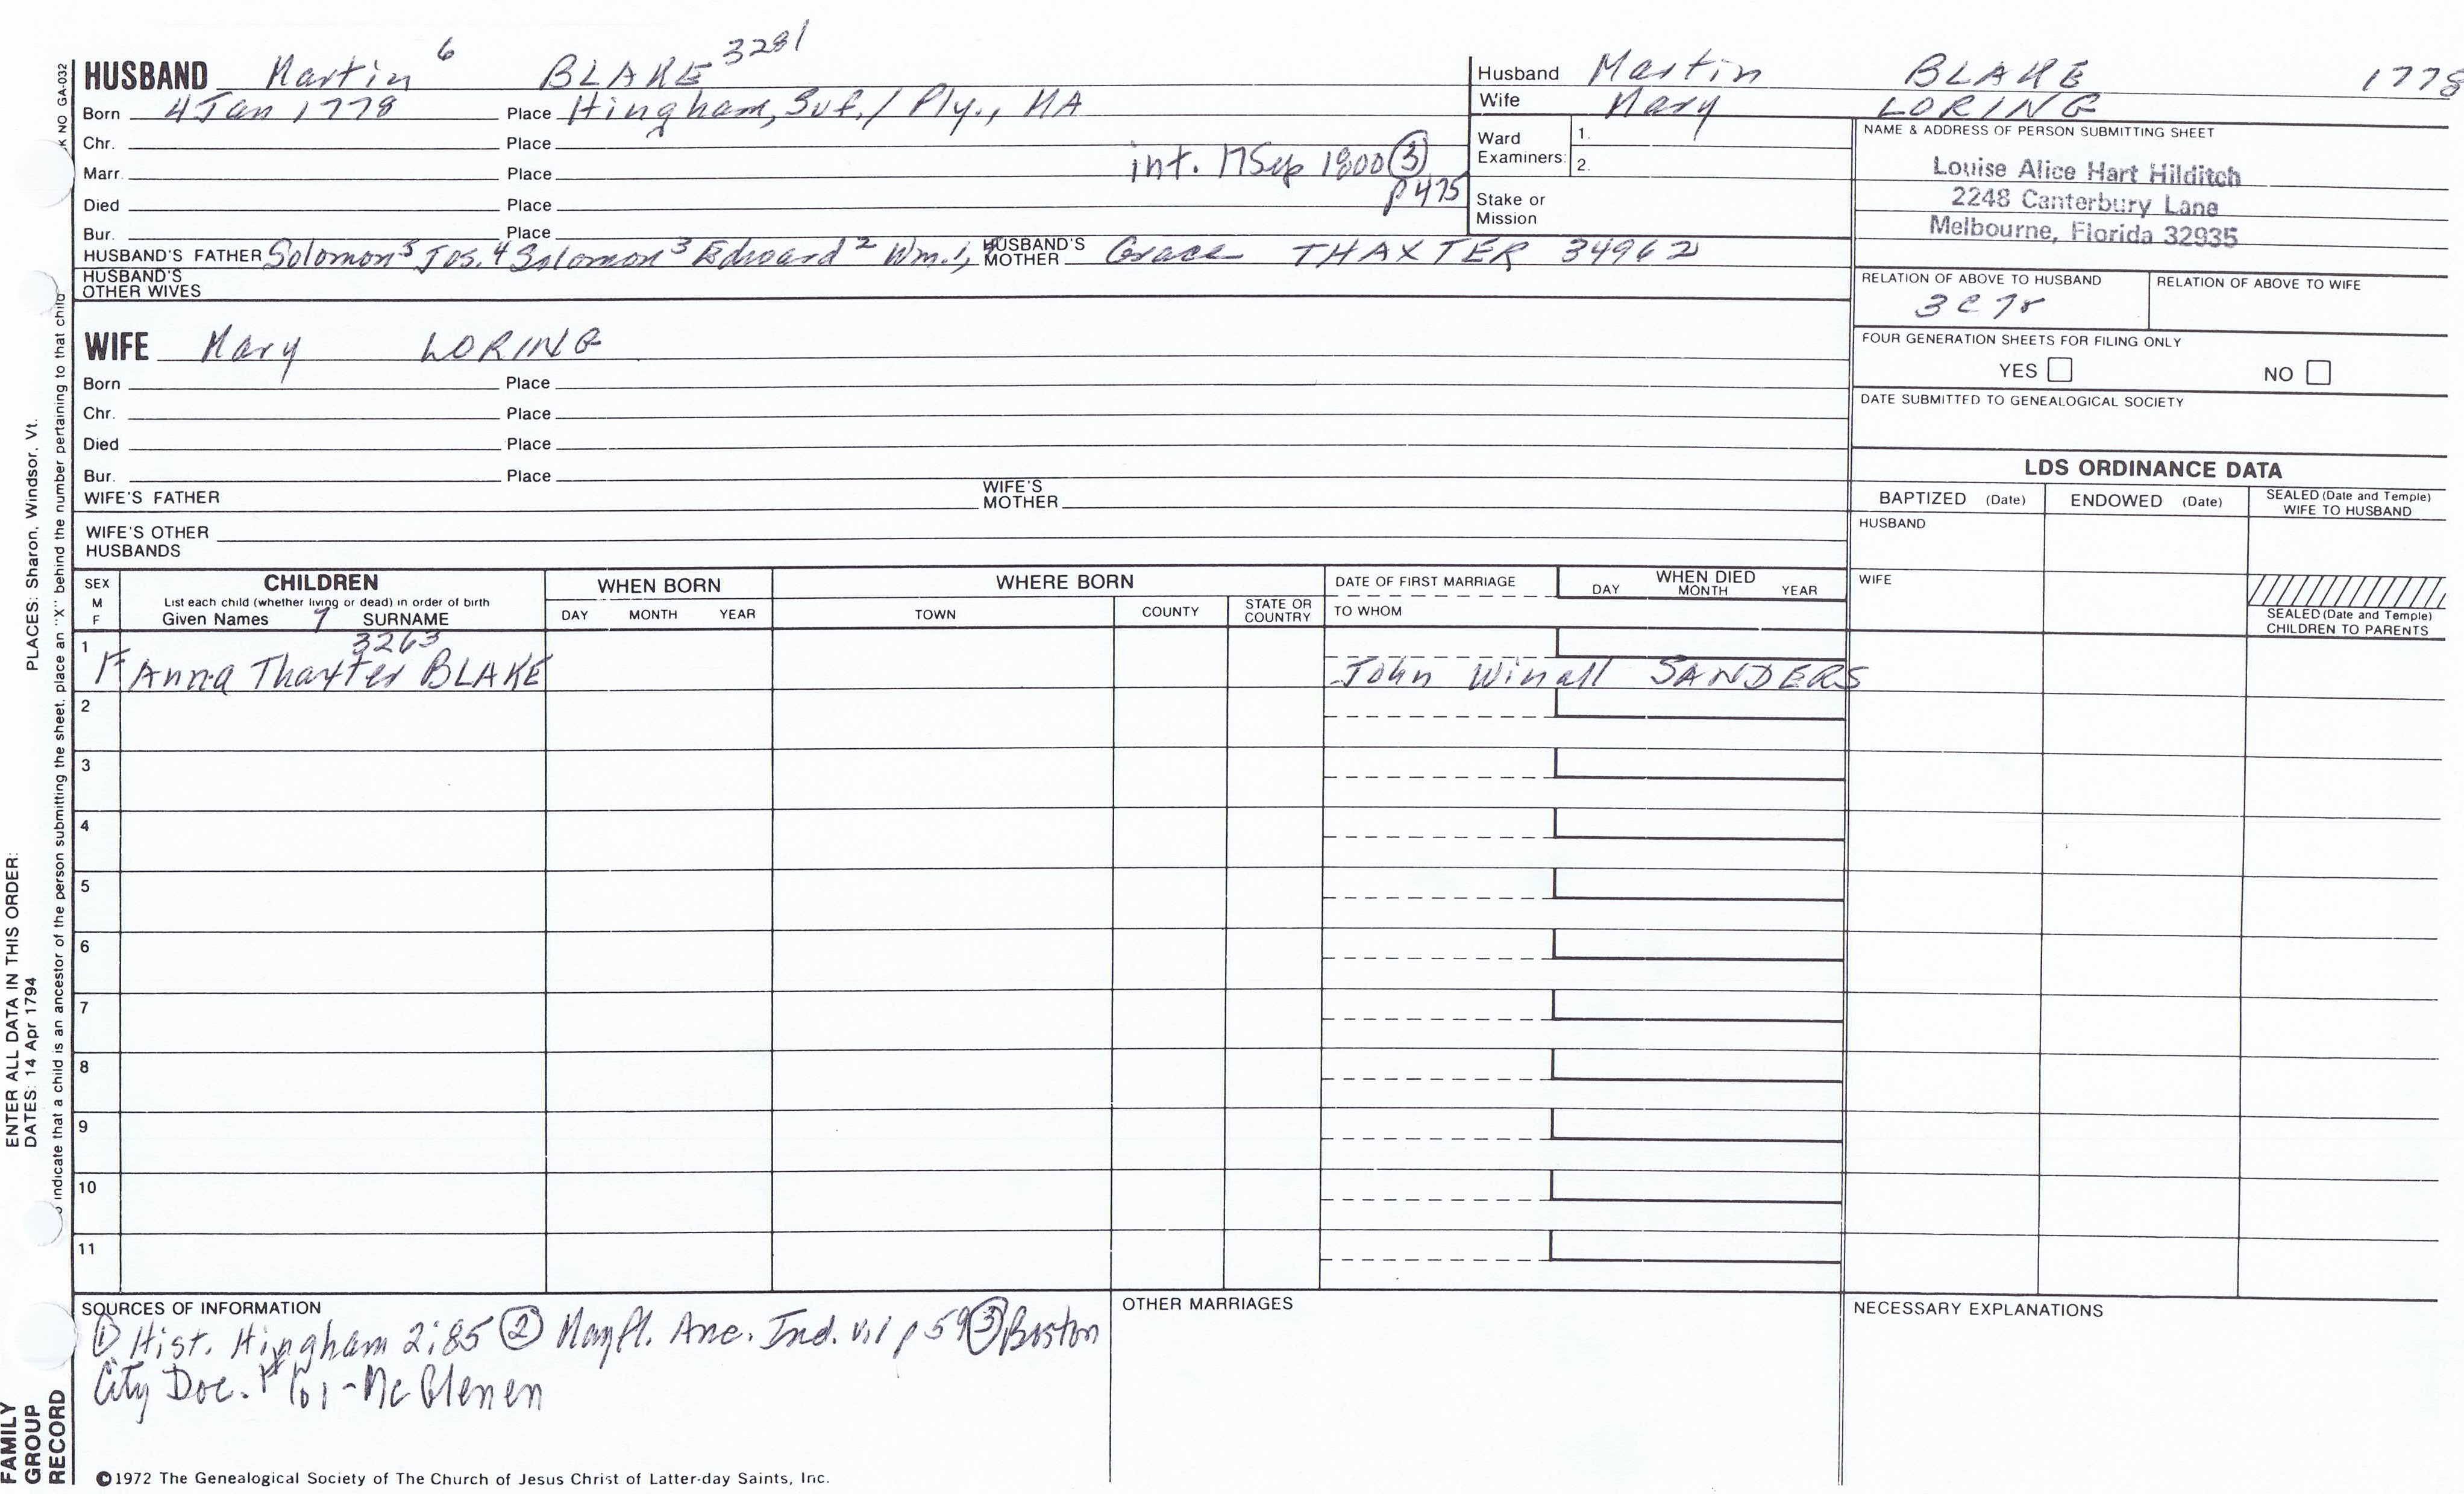 HUSBAND Martin 6 BLAKE 3281
Born 4 Jan 1778 Place Hingham, Suf./Ply., MA
Chr. Place
Marr. Place int. 17 Sep 1800 (3) p 475
Died Place
Bur. Place
HUSBAND'S FATHER Solomon 5 Jos. 4 Solomon 3 Edward 2 Wm. 1, HUSBAND'S MOTHER Grace THAXTER 34962
HUSBAND'S OTHER WIVES
WIFE Mary LORING
Born Place
Chr. Place
Died Place
Bur. Place
WIFE'S FATHER WIFE'S MOTHER
WIFE'S OTHER HUSBANDS
Husband Martin BLAKE 1778
Wife Mary LORING
Ward Examiners: 1.
2.
Stake or Mission
NAME & ADDRESS OF PERSON SUBMITTING SHEET
Louise Alice Hart Hilditch
2248 Canterbury Lane
Melbourne, Florida 32935
RELATION OF ABOVE TO HUSBAND RELATION OF ABOVE TO WIFE
3C7r
FOUR GENERATION SHEETS FOR FILING ONLY
YES NO
DATE SUBMITTED TO GENEALOGICAL SOCIETY
LDS ORDINANCE DATA
BAPTIZED (Date) ENDOWED (Date) SEALED (Date and Temple) WIFE TO HUSBAND
HUSBAND
WIFE
SEALED (Date and Temple) CHILDREN TO PARENTS
SEX M F
CHILDREN
List each child (whether living or dead) in order of birth
Given Names 7 SURNAME
WHEN BORN
DAY MONTH YEAR
WHERE BORN
TOWN COUNTY STATE OR COUNTRY
DATE OF FIRST MARRIAGE
TO WHOM
WHEN DIED
DAY MONTH YEAR
1 3263
F Anna Thaxter BLAKE John Winall SANDERS
2
3
4
5
6
7
8
9
10
11
SOURCES OF INFORMATION
(1) Hist. Hingham 2:85 (2) Mayfl. Anc. Ind. v.1 p 59 (3) Boston
City Doc. # 101 - McGlenen
OTHER MARRIAGES
NECESSARY EXPLANATIONS
©1972 The Genealogical Society of The Church of Jesus Christ of Latter-day Saints, Inc.
FAMILY
GROUP
RECORD
ENTER ALL DATA IN THIS ORDER:
DATES: 14 Apr 1794 PLACES: Sharon, Windsor, Vt.
indicate that a child is an ancestor of the person submitting the sheet, place an "X" behind the number pertaining to that child
NO GA-032